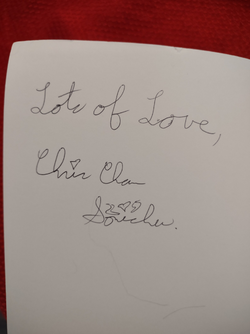 Lots of Love,
Chris Chan
Sonichu.